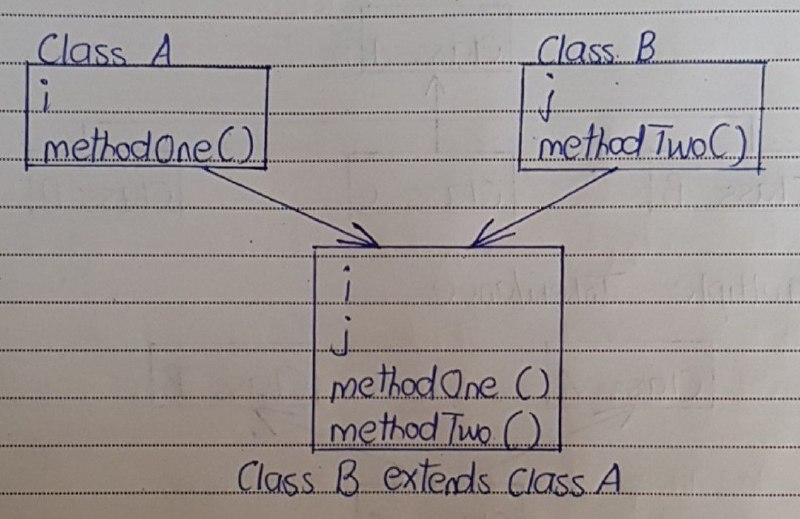 Class A
i
methodOne()
Class B
j
methodTwo()
i
j
methodOne ()
methodTwo ()
Class B extends Class A